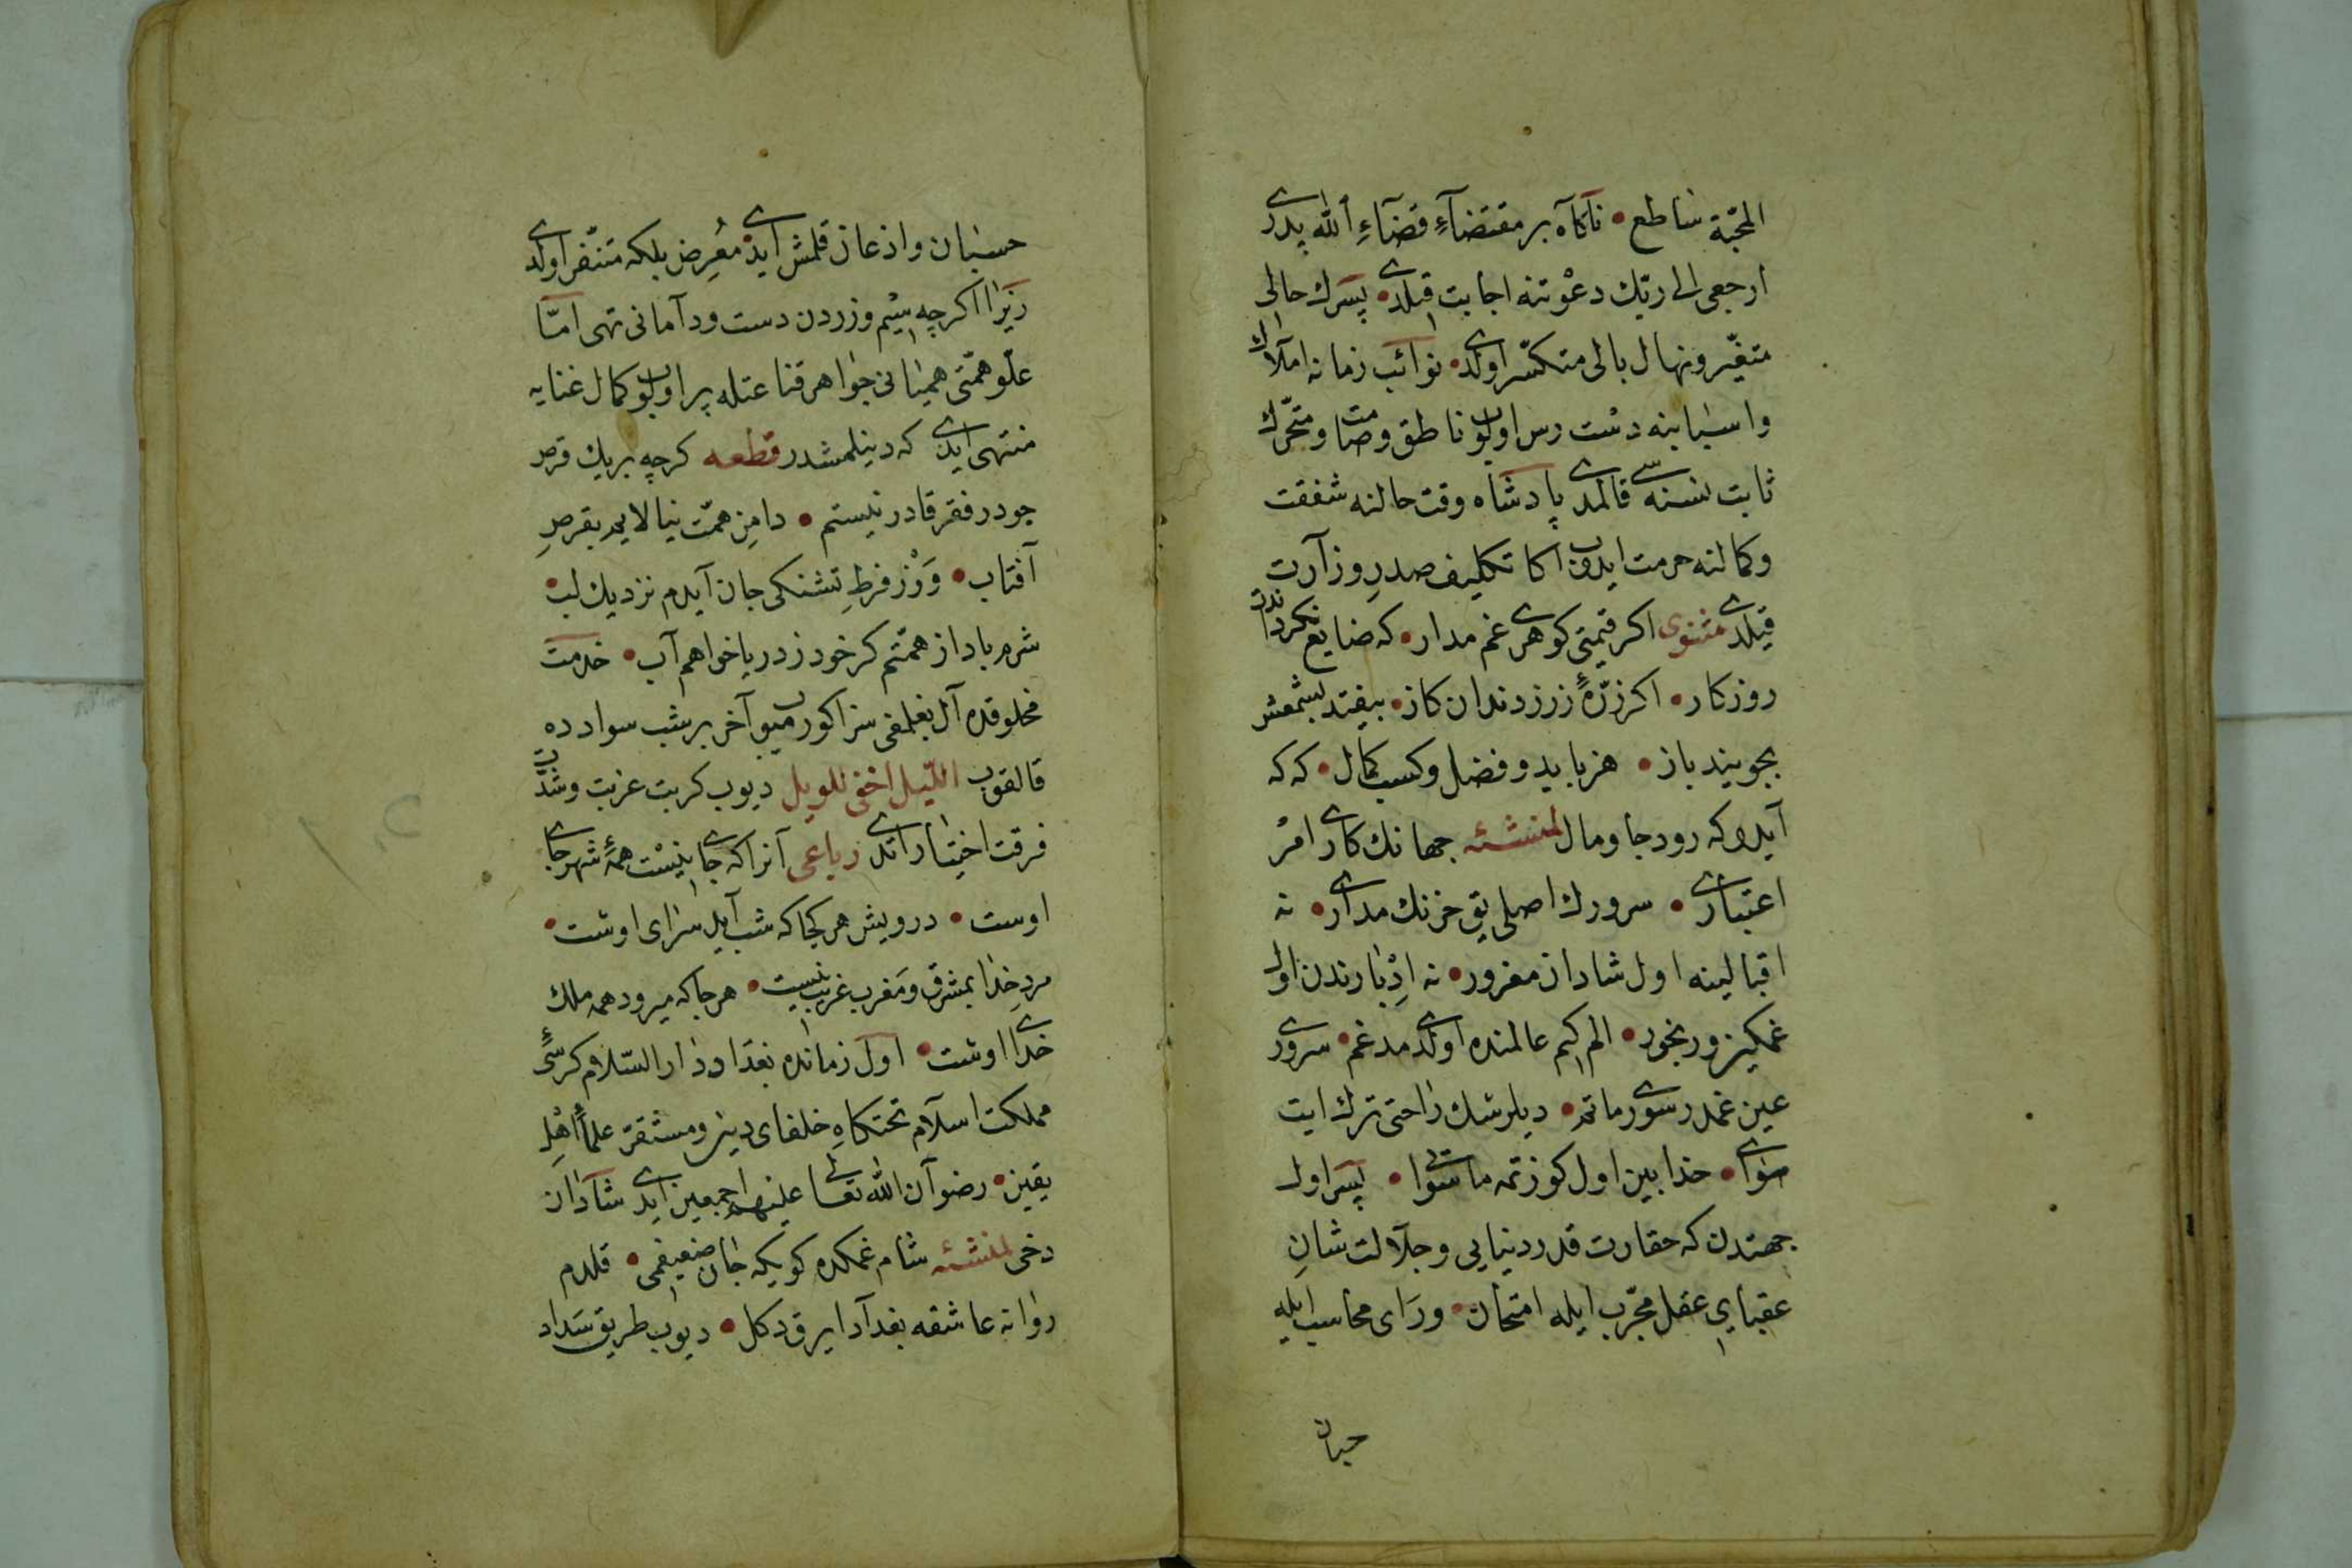 المحجّة ساطع • ناكاه بر مقتضآءِ قضآءِ الله پدری
ارجعی الی ربّك دعوتنه اجابت قیلدی • پسرك حالی
متغیّر ونهال بالی متكسّر اولدی • نوائب زمانه املاك
واسبابنه دست رس اولوب ناطق وصامت ومتحرّك
ثابت نسنه‌سی قالمدی پادشاه وقت حالنه شفقت
وكمالنه حرمت ایدوب اكا تكلیف صدرِ وزارت
قیلدی مثنوی اكر قیمتی كوهری غم مدار • كه ضایع نكرداندت
روزكار • اكر زرّهٔ زرز دندان كاز • بیفتد بشمعش
بجویند باز • هنر باید و فضل وكسب كمال • كه كه
آید وكه رود جا ومال لمنشئه جهانك كاری امر
اعتباری • سرورك اصلی یق حزنك مداری • نه
اقبالینه اول شادان مغرور • نه ادبارندن اول
غمكین ورنجور • الم كیم عالمنده اولدی مدغم • سروری
عین غمدر سوری ماتم • دیلرسك راحتی ترك ایت
سوای • خدا بین اول كوزتمه ماسوای • پسر اول
جهتدن كه حقارت قدر دنیایی وجلالت شانِ
عقبایی عقل مجرّب ایله امتحان • ورای محاسب ایله
حسبان
حسبان واذعان قلمش ایدی معرِض بلكه متنفّر اولدی
زیرا اكرچه سیم وزردن دست ودامانی تهی امّا
علوّ همّتی همیانی جواهر قناعتله پر اولوب كمال غنایه
منتهی ایدی كه دینلمشدر قطعه كرچه بریك قرص
جو در فقر قادر نیستم • دامنِ همّت نیالایم بقرصِ
آفتاب • وَرْز فرطِ تشنكی جان آیدم نزدیك لب
شرم باد از همّتم كر خود ز دریا خواهم آب • خدمت
مخلوقده آل بغلمغی سزا كورمیوب آخر بر شب سوادده
قالقوب اللیل اخفی للویل دیوب كربت غربت وشدّت
فرقت اختیار اتدی رباعی آنرا كه جای نیست همهٔ شهر جای
اوست • درویش هر كجا كه شب آید سرای اوست •
مردِ خدا بمشرق ومغرب غریب نیست • هر جا كه میرود همه ملك
خدای اوست • اول زمانده بغداد دار السّلام كرسئ
مملكت اسلام تختكاهِ خلفای دین ومستقرّ علمأ اهلِ
یقین • رضوان الله تعالی علیهم اجمعین ایدی شادان
دخی لمنشئه شام غمكده كویكه جان ضعیفمی • قلدم
روانه عاشقه بغداد ایرق دكل • دیوب طریق سَداد